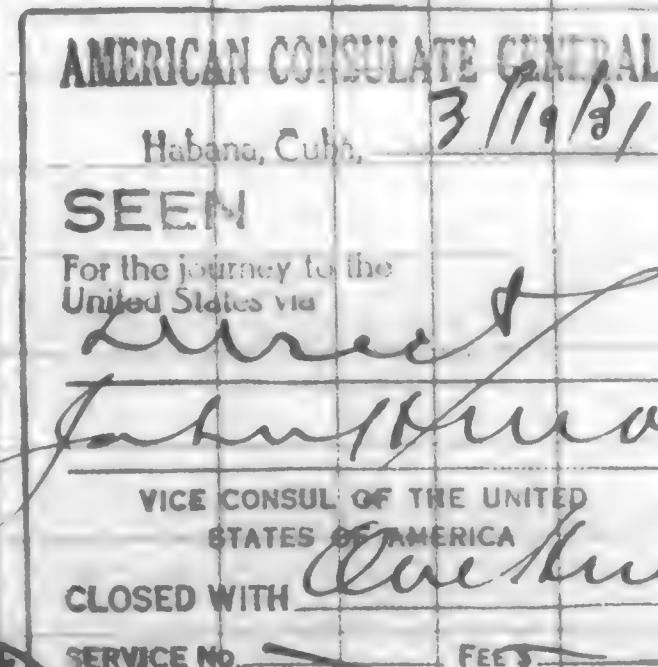 AMERICAN CONSULATE GENERAL
Habana, Cuba, 3/19/31
SEEN
For the journey to the
United States via
Direct
John H
VICE CONSUL OF THE UNITED
STATES OF AMERICA
CLOSED WITH One
SERVICE No FEE $